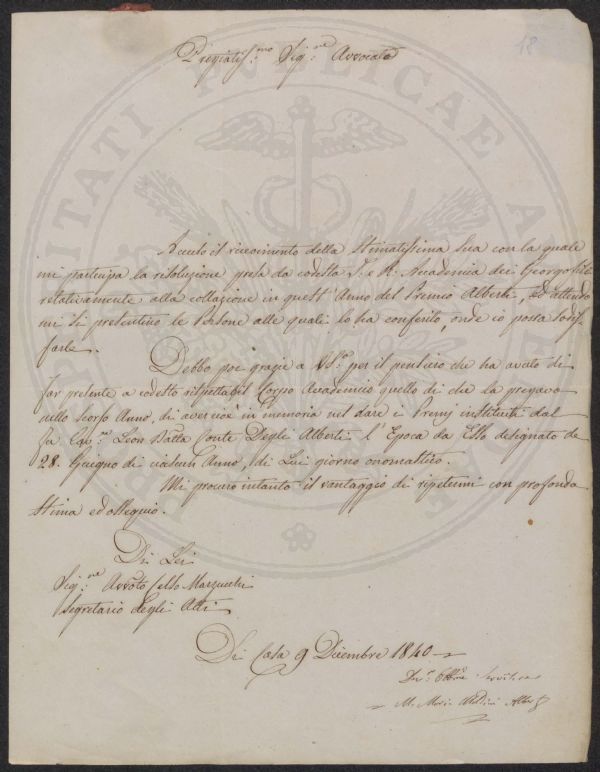 18
Pregiatiss.mo Sig.re Avvocato
Accuso il ricevimento della Stimatissima Sua con la quale
mi partecipa la risoluzione presa da codesta I. e R. Accademia dei Georgofili
relativamente alla collazione in quest' Anno del Premio Alberti, ed attendo
mi si presentino le Persone alle quali lo ha conferito, onde io possa sodis-
farle.
Debbo poi grazie a VS.a per il pensiero che ha avuto di
far presente a codesto rispettabil Corpo Accademico quello di che la pregavo
nello scorso Anno, di aver cioè in memoria nel dare i Premj instituiti dal
fu Cav.re Leon Batta Conte Degli Alberti l'Epoca da Esso designato de
28. Giugno di ciascun Anno, di Lui giorno onomastico.
Mi procuro intanto il vantaggio di ripetermi con profonda
Stima ed ossequio.
Di Lei
Sig.re Avvoto Celso Marzucchi
Segretario degli Atti
Di Casa 9 Dicembre 1840
Dev. Obb.
M. Alberti
PROSPERITATI PUBLICAE AUGENDAE